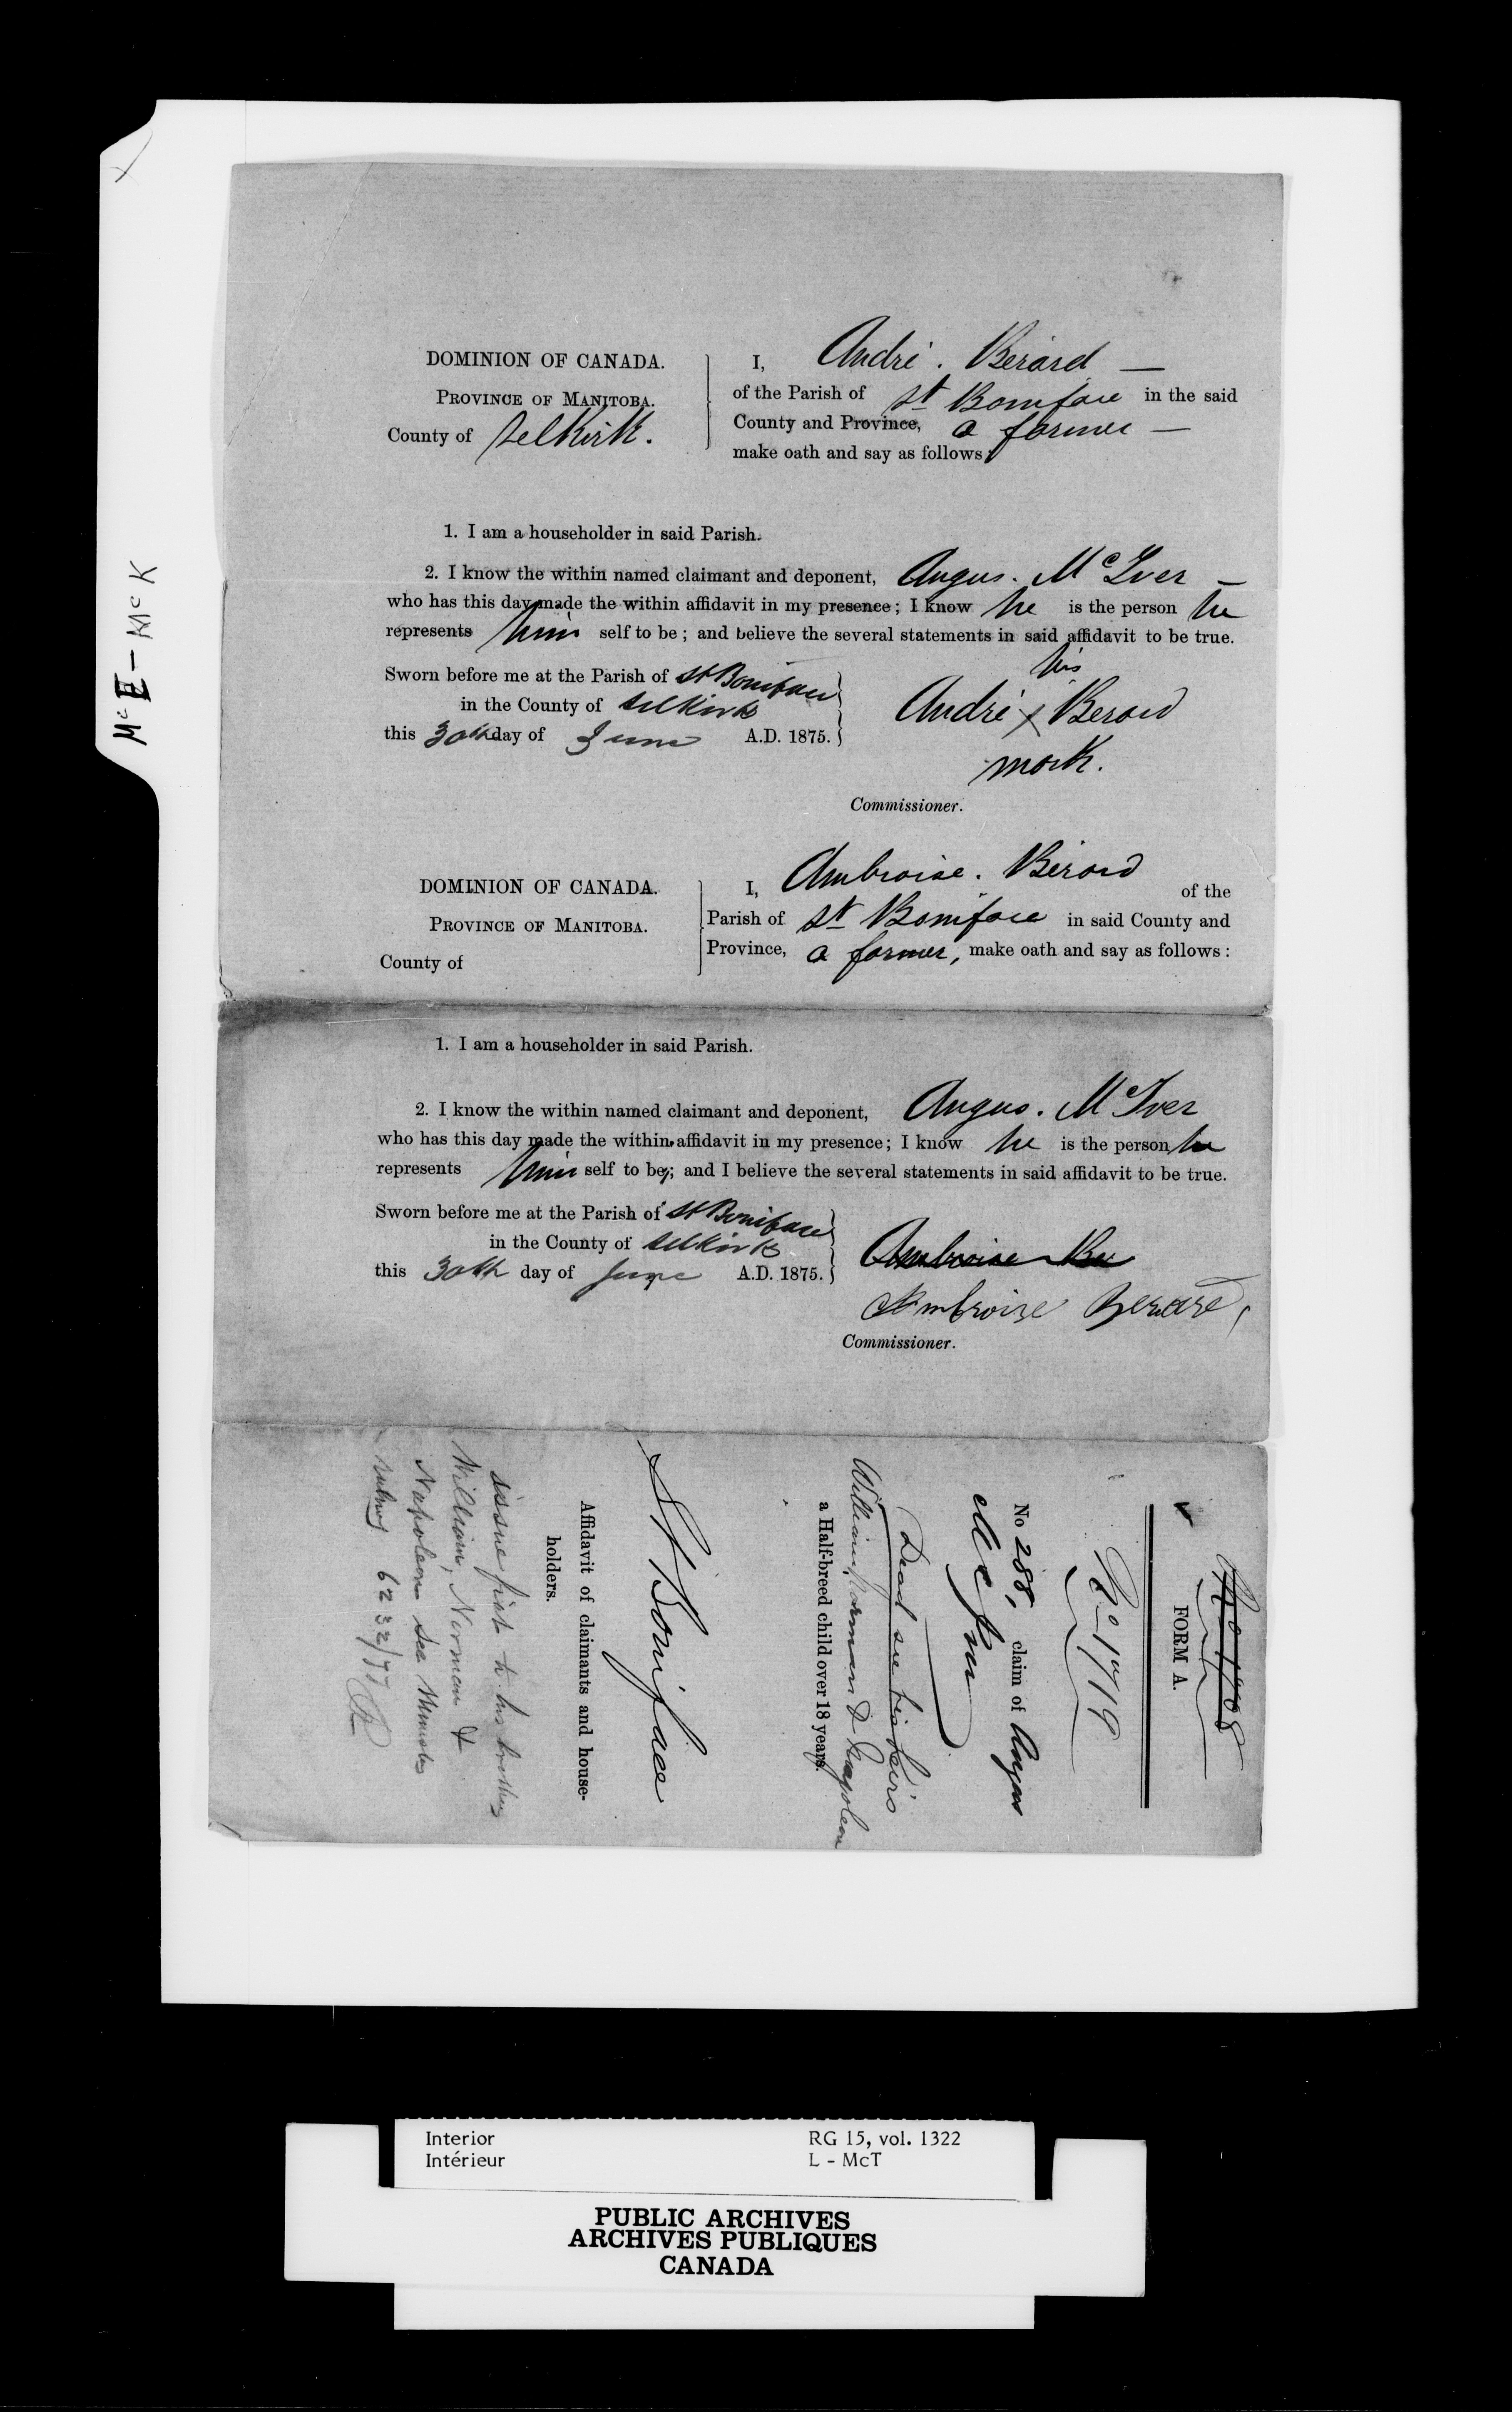 Mc I - McK
DOMINION OF CANADA.
PROVINCE OF MANITOBA.
County of Selkirk.
I, André. Berard —
of the Parish of St Boniface in the said
County and Province, a farmer —
make oath and say as follows
1. I am a householder in said Parish.
2. I know the within named claimant and deponent, Angus. McIver —
who has this day made the within affidavit in my presence; I know he is the person he
represents him self to be; and believe the several statements in said affidavit to be true.
Sworn before me at the Parish of St Boniface
in the County of Selkirk
this 30th day of June A.D. 1875.
his
André x Berard
mark.
Commissioner.
DOMINION OF CANADA.
PROVINCE OF MANITOBA.
County of
I, Ambroise. Berard of the
Parish of St Boniface in said County and
Province, a farmer, make oath and say as follows:
1. I am a householder in said Parish.
2. I know the within named claimant and deponent, Angus. McIver
who has this day made the within affidavit in my presence; I know he is the person he
represents him self to be; and I believe the several statements in said affidavit to be true.
Sworn before me at the Parish of St Boniface
in the County of Selkirk
this 30th day of June A.D. 1875.
Ambroise Ber
Ambroise Berard,
Commissioner.
FORM A.
No 1719
No 288, claim of Angus
McIver
Dead see his heirs
William, Norman & Napoleon
a Half-breed child over 18 years.
St Boniface
Affidavit of claimants and house-
holders.
issue first to his brothers
William, Norman &
Napoleon see
6232/77
Interior
Intérieur
RG 15, vol. 1322
L - McT
PUBLIC ARCHIVES
ARCHIVES PUBLIQUES
CANADA